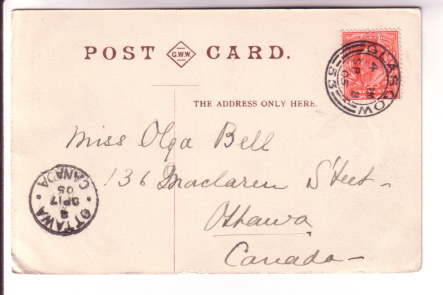 POST G.W.W. CARD.
THE ADDRESS ONLY HERE.
GLASGOW
53
Miss Olga Bell
136 Maclaren Street
Ottawa
Canada
OTTAWA CANADA
SP 17
05